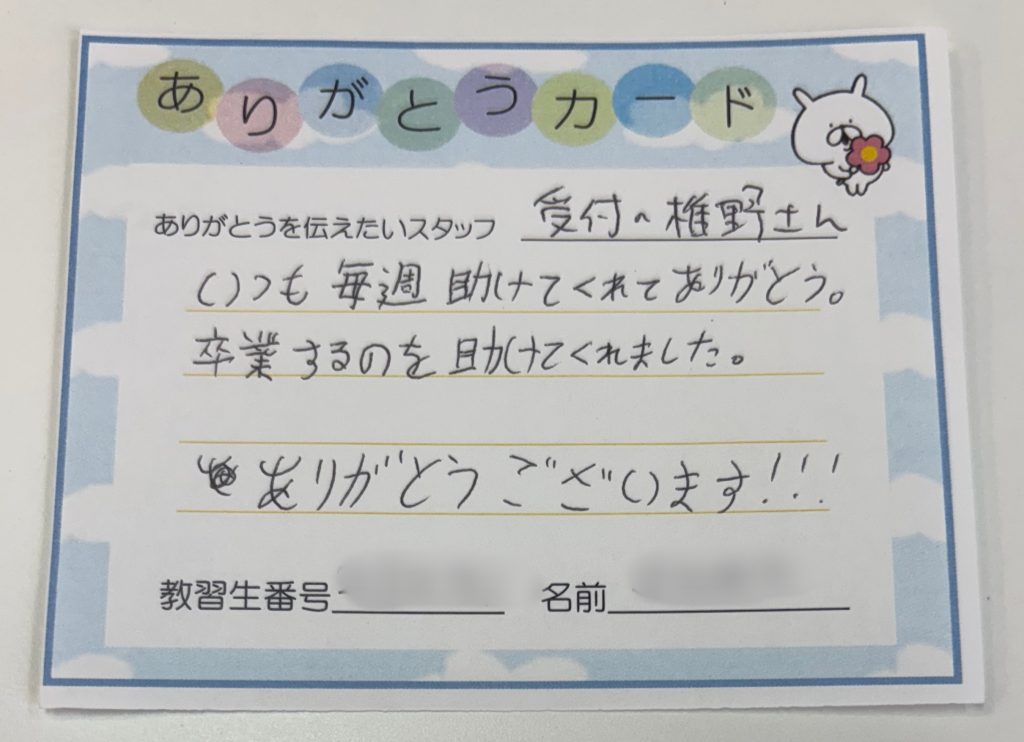 ありがとうカード
ありがとうを伝えたいスタッフ 受付の椎野さん
いつも毎週助けてくれてありがとう。
卒業するのを助けてくれました。
ありがとうございます!!!
教習生番号 名前